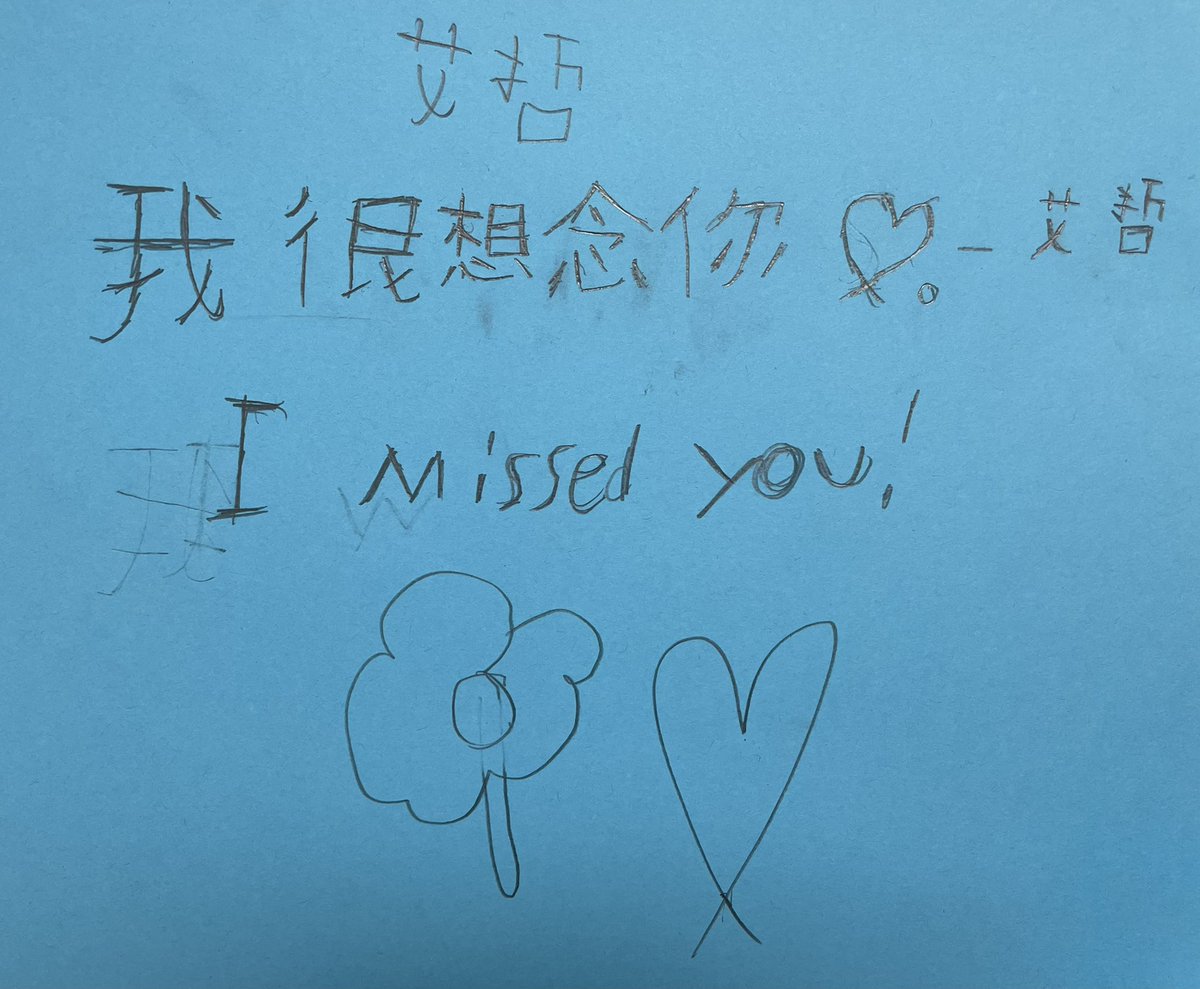 艾哲
我很想念你♡。– 艾哲
I missed you!